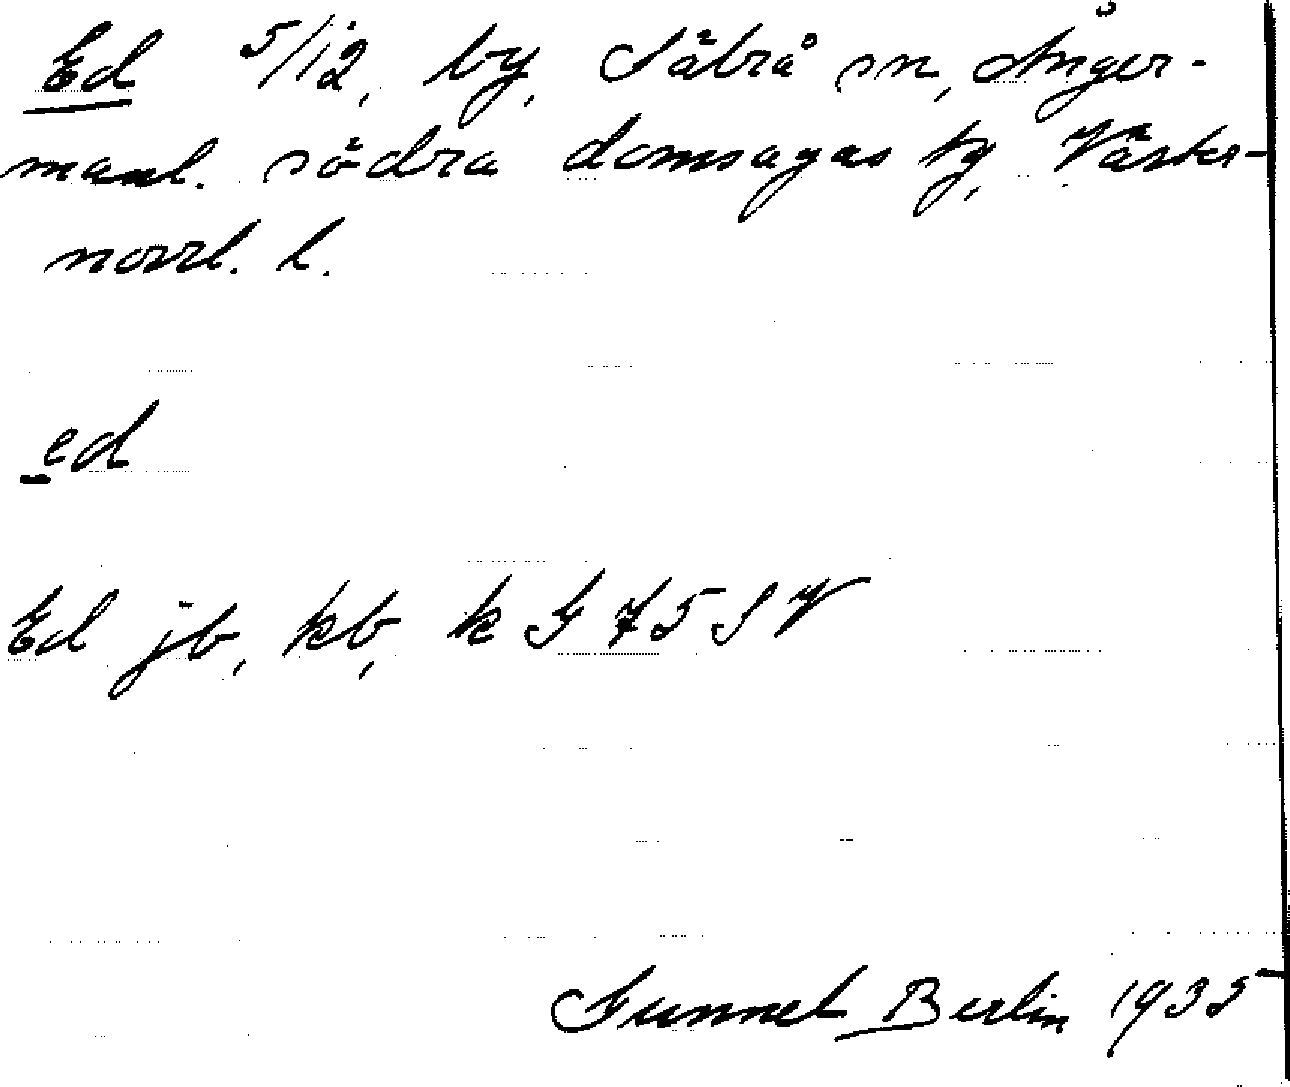 Ed 5/12, by, Säbrå sn, Ånger-
manl. södra domsagas tg, Väster-
norrl. l.
ed
Ed jb, kb, k G 75 S V
Gunnel Berlin 1935